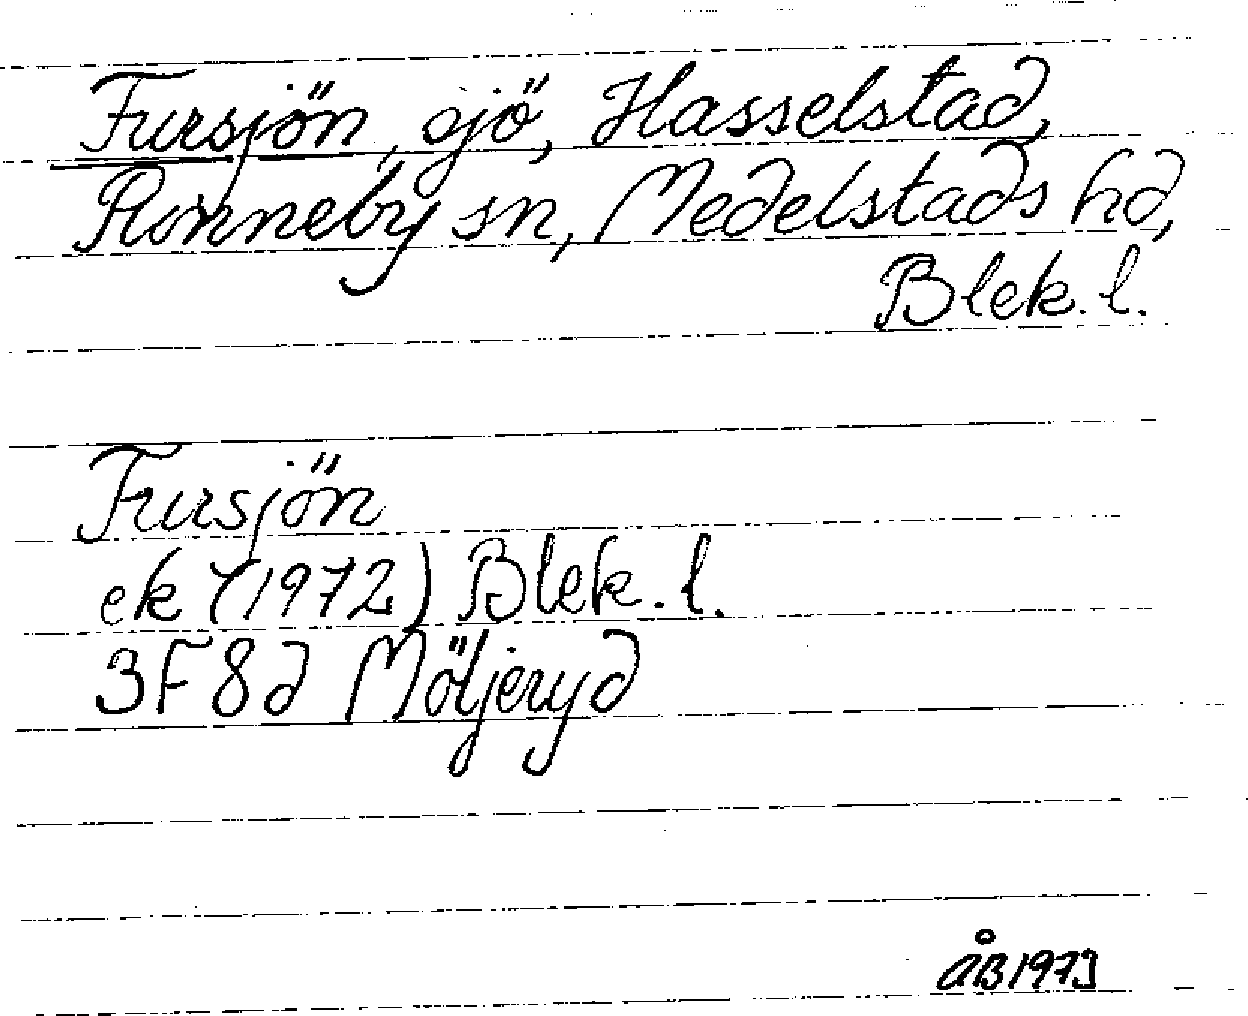 Fursjön, sjö, Hasselstad,
Ronneby sn, Medelstads hd,
Blek. l.
Fursjön
ek (1972) Blek. l.
3F 8d Möljeryd
ÅB 1973